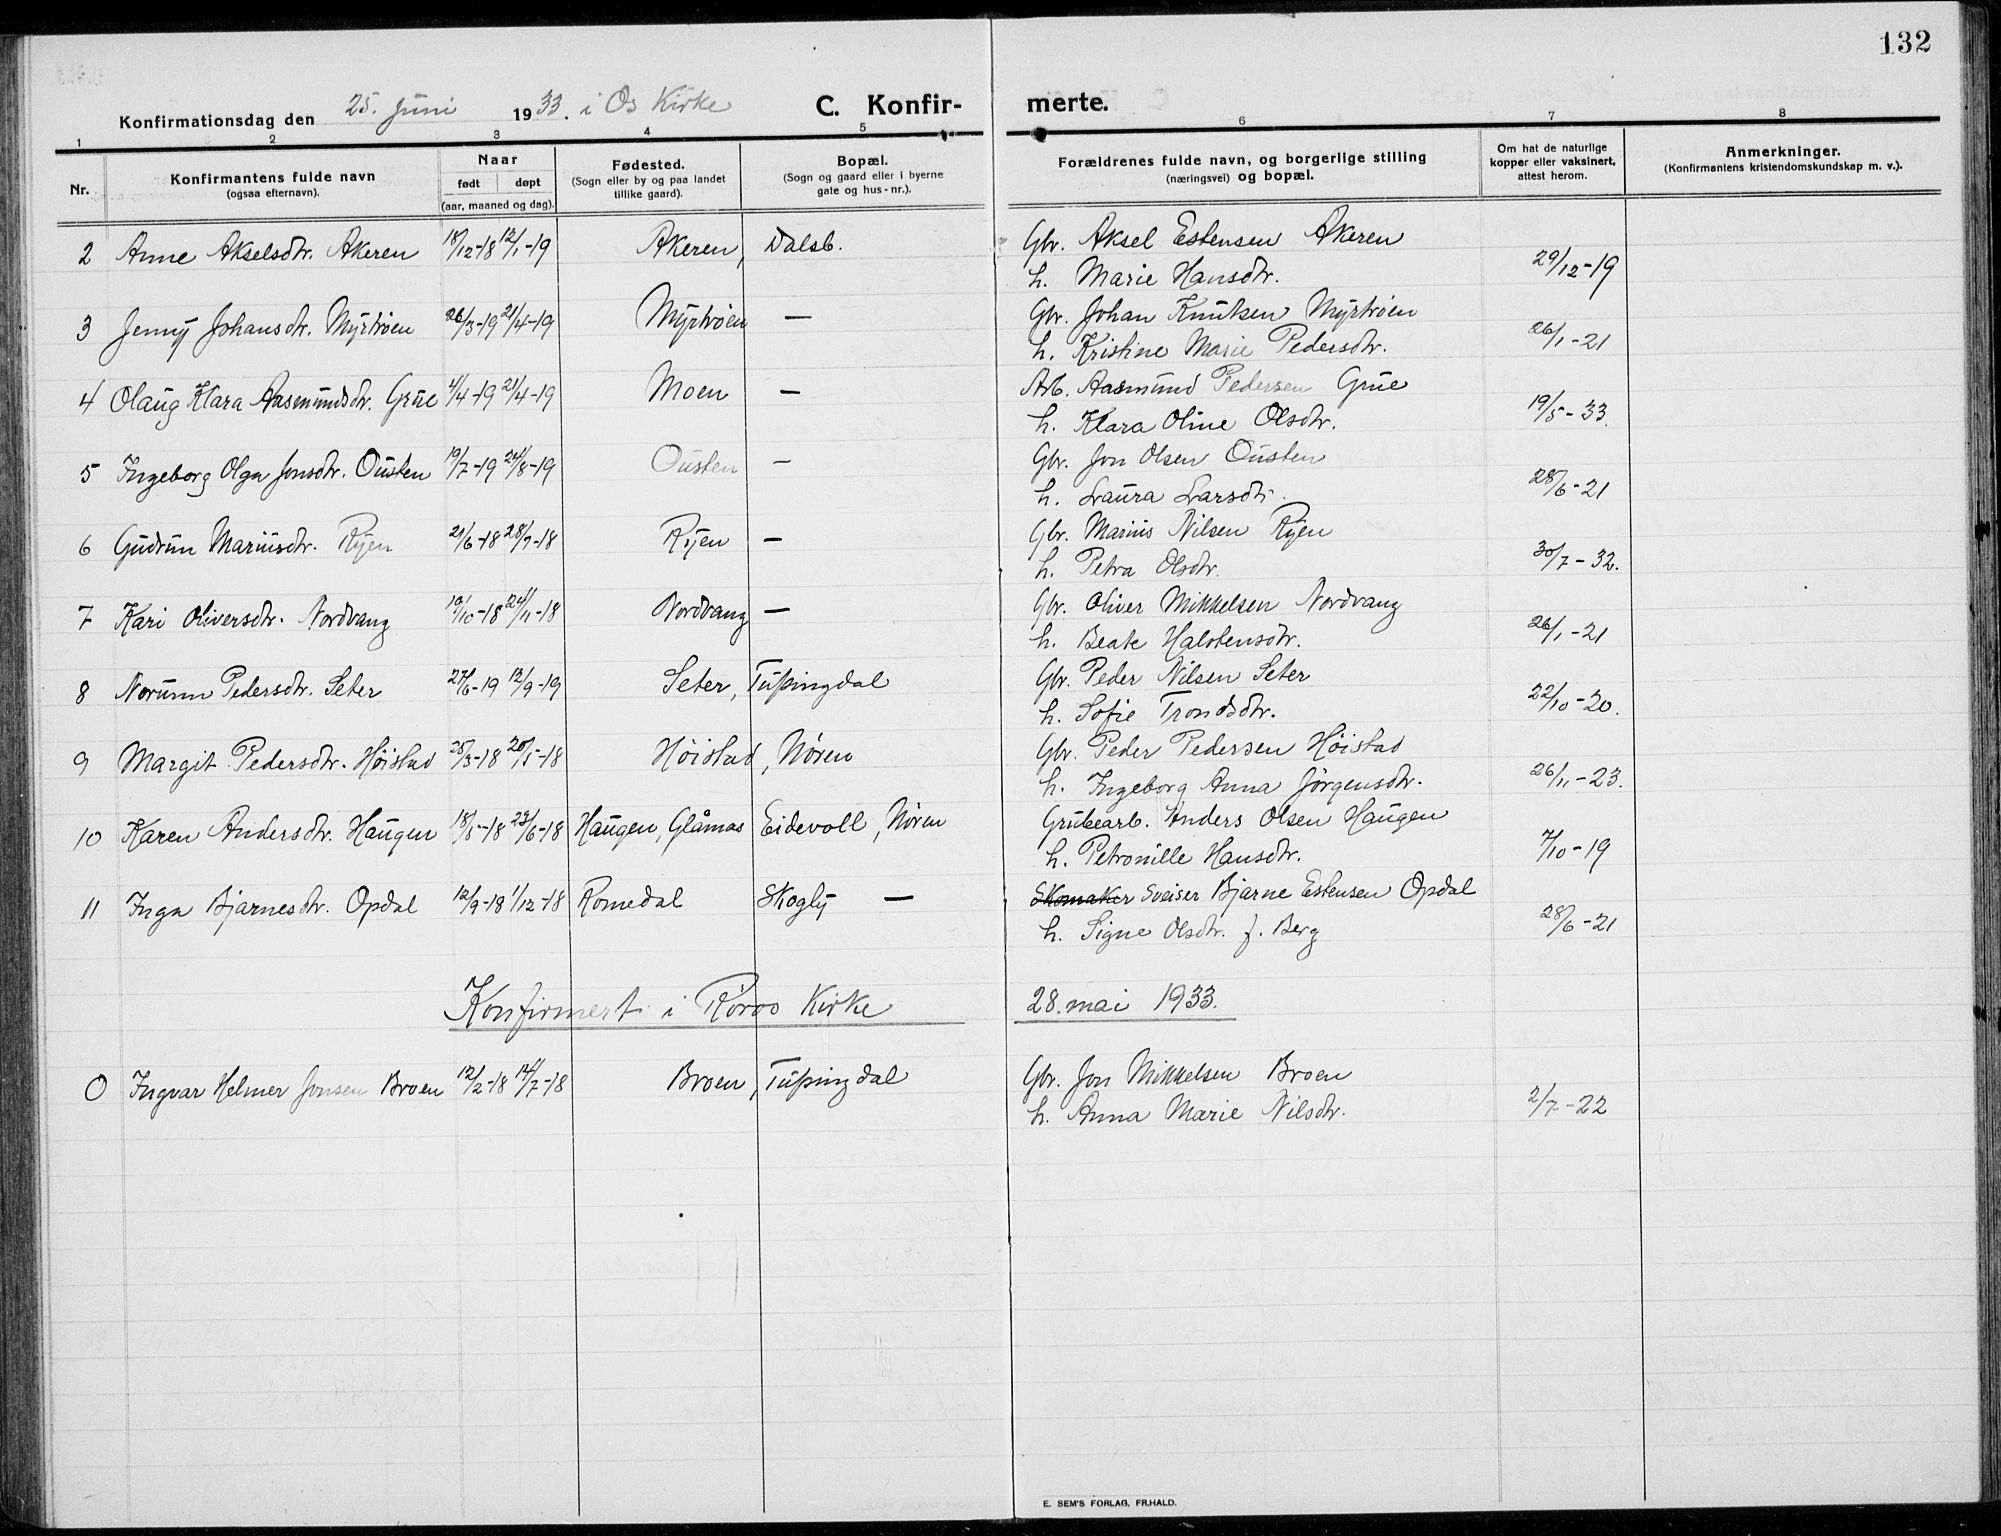 132
Konfirmationsdag den 25. Juni 1933. i Os Kirke C. Konfir- merte.
1 2 3 4 5 6 7 8
Nr. Konfirmantens fulde navn (ogsaa efternavn). Naar født døpt (aar, maaned og dag). Fødested. (Sogn eller by og paa landet tillike gaard). Bopæl. (Sogn og gaard eller i byerne gate og hus-nr.). Forældrenes fulde navn, og borgerlige stilling (næringsvei) og bopæl. Om hat de naturlige kopper eller vaksinert, attest herom. Anmerkninger. (Konfirmantens kristendomskundskap m. v.).
2 Anne Akselsdtr. Akeren 18/12-18 12/1-19 Akeren, Dalsb. Gbr. Aksel Estensen Akeren
h. Marie Hansdtr. 29/12-19
3 Jenny Johansdtr. Myrtrøen 26/3-19 21/4-19 Myrtrøen — Gbr. Johan Knutsen Myrtrøen
h. Kristine Marie Pedersdtr. 26/1-21
4 Olaug Klara Aasmundsdtr. Grue 4/4-19 21/4-19 Moen — Arb. Aasmund Pedersen Grue
h. Klara Oline Olsdtr. 19/5-33.
5 Ingeborg Olga Jonsdtr. Ousten 19/7-19 24/8-19 Ousten — Gbr. Jon Olsen Ousten
h. Laura Larsdtr. 28/6-21
6 Gudrun Mariusdtr. Ryen 21/6-18 28/7-18 Ryen — Gbr. Marius Nilsen Ryen
h. Petra Olsdtr. 30/7-32.
7 Kari Oliversdtr. Nordvang 19/10-18 24/11-18 Nordvang — Gbr. Oliver Mikkelsen Nordvang
h. Beate Halstensdtr. 26/1-21
8 Norunn Pedersdtr. Seter 27/6-19 12/9-19 Seter, Tufsingdal Gbr. Peder Nilsen Seter
h. Sofie Trondsdtr. 22/10-20.
9 Margit Pedersdtr. Høistad 25/3-18 20/5-18 Høistad, Nøren Gbr. Peder Pedersen Høistad
h. Ingeborg Anna Jørgensdtr. 26/11-23.
10 Karen Andersdtr. Haugen 18/5-18 23/6-18 Haugen, Glåmos Eidevoll, Nøren Grubearb. Anders Olsen Haugen
h. Petronille Hansdtr. 7/10-19
11 Inga Bjarnesdtr. Opdal 12/9-18 1/12-18 Romedal Skogly — Skomaker Sveiser Bjarne Estensen Opdal
h. Signe Olsdtr. f. Berg 28/6-21
Konfirmert i Røros Kirke 28. mai 1933.
0 Ingvar Helmer Jonsen Broen 12/2-18 14/7-18 Broen, Tufsingdal Gbr. Jon Mikkelsen Broen
h. Anna Marie Nilsdtr. 2/7-22
E. SEM'S FORLAG, FR.HALD.